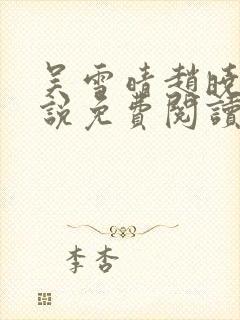 吴雪晴趙晓
說免費閱讀
李杏